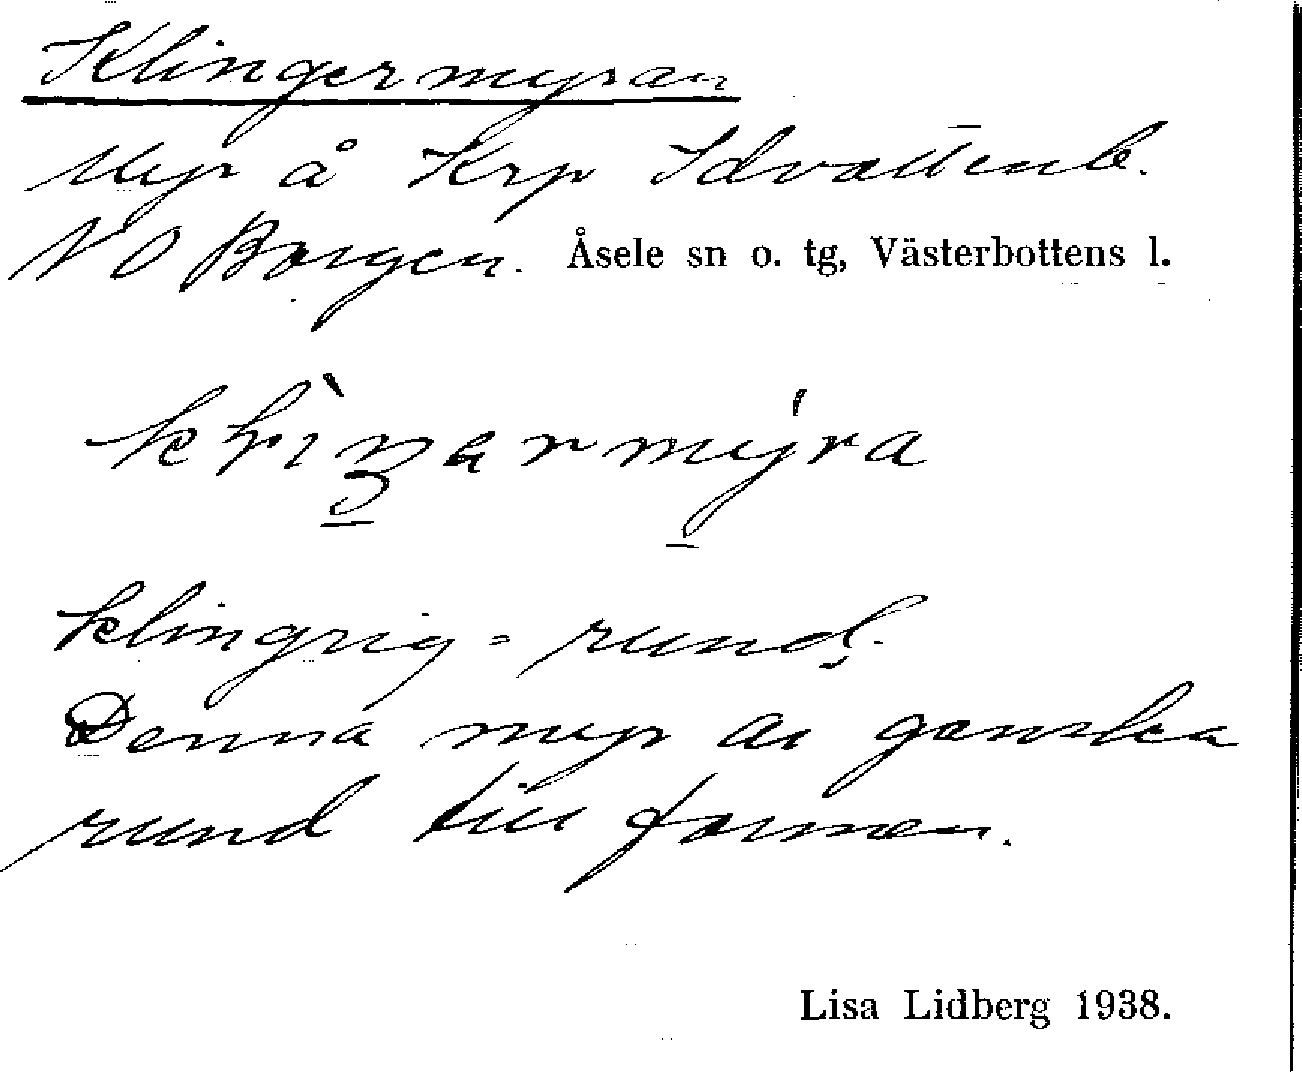 Klingermyran
Myr å Krp Idvattenb.
N O Borgen. Åsele sn o. tg, Västerbottens l.
klingrig = rund.
Denna myr är ganska
rund till formen.
Lisa Lidberg 1938.